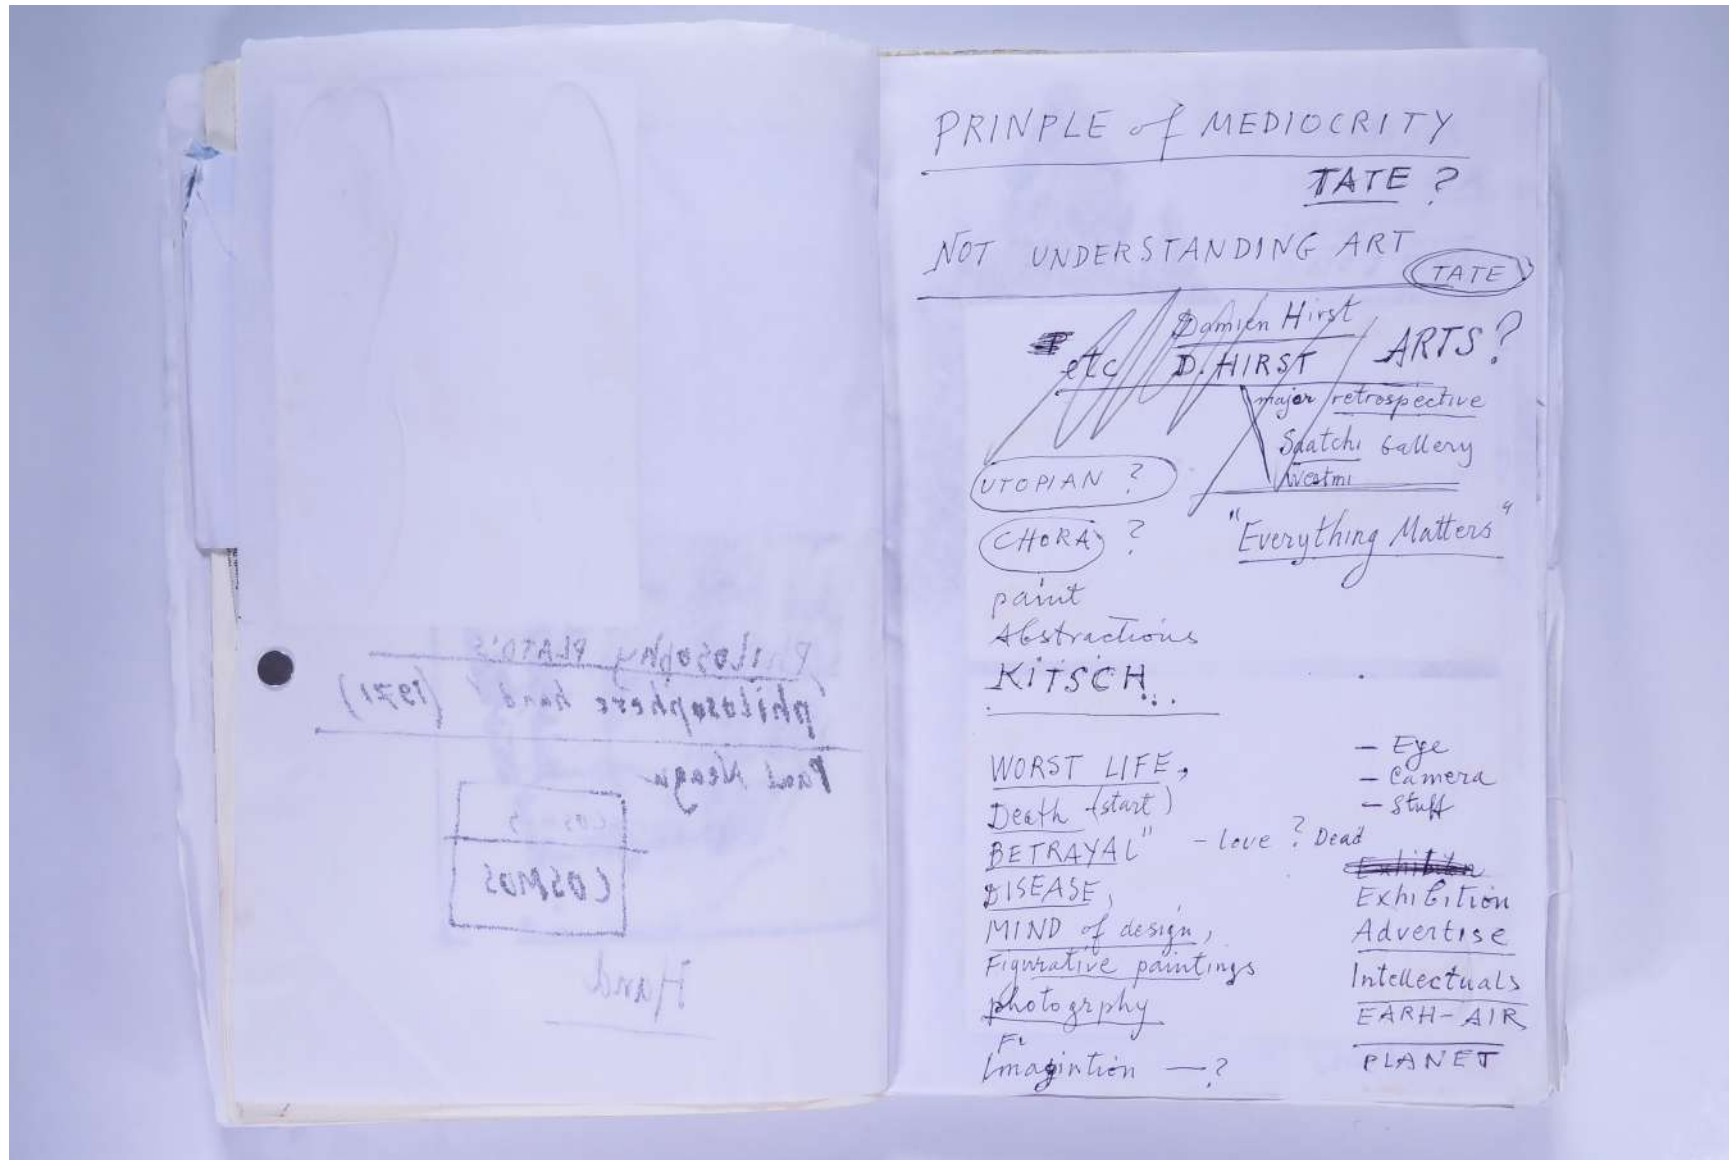 Philosophy PLATO'S
"philosophers hand" (1971)
Paul Neagu
COSMOS
COSMOS
Hand
PRINPLE of MEDIOCRITY
TATE ?
NOT UNDERSTANDING ART
TATE
Damien Hirst
etc D. HIRST ARTS?
major retrospective
Saatchi Gallery
UTOPIAN ?
CHORA ?
"Everything Matters"
paint
Abstractions
KITSCH...
WORST LIFE,
Death (start)
BETRAYAL" - Love ? Dead
DISEASE,
MIND of design,
Figurative paintings
photogrphy
Imagintion —?
- Eye
- Camera
- Stuff
Exhibition
Advertise
Intellectuals
EARH-AIR
PLANET